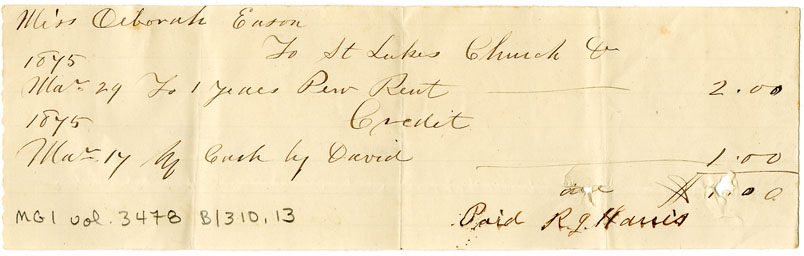 Miss Deborah Eason
To St Lukes Church Dr
1875
Mar 29 To 1 years Pew Rent 2.00
1875 Credit
Mar 17 By Cash by David 1.00
due $1.00
MG1 vol. 3478 B/310.13
Paid R.J. Harris